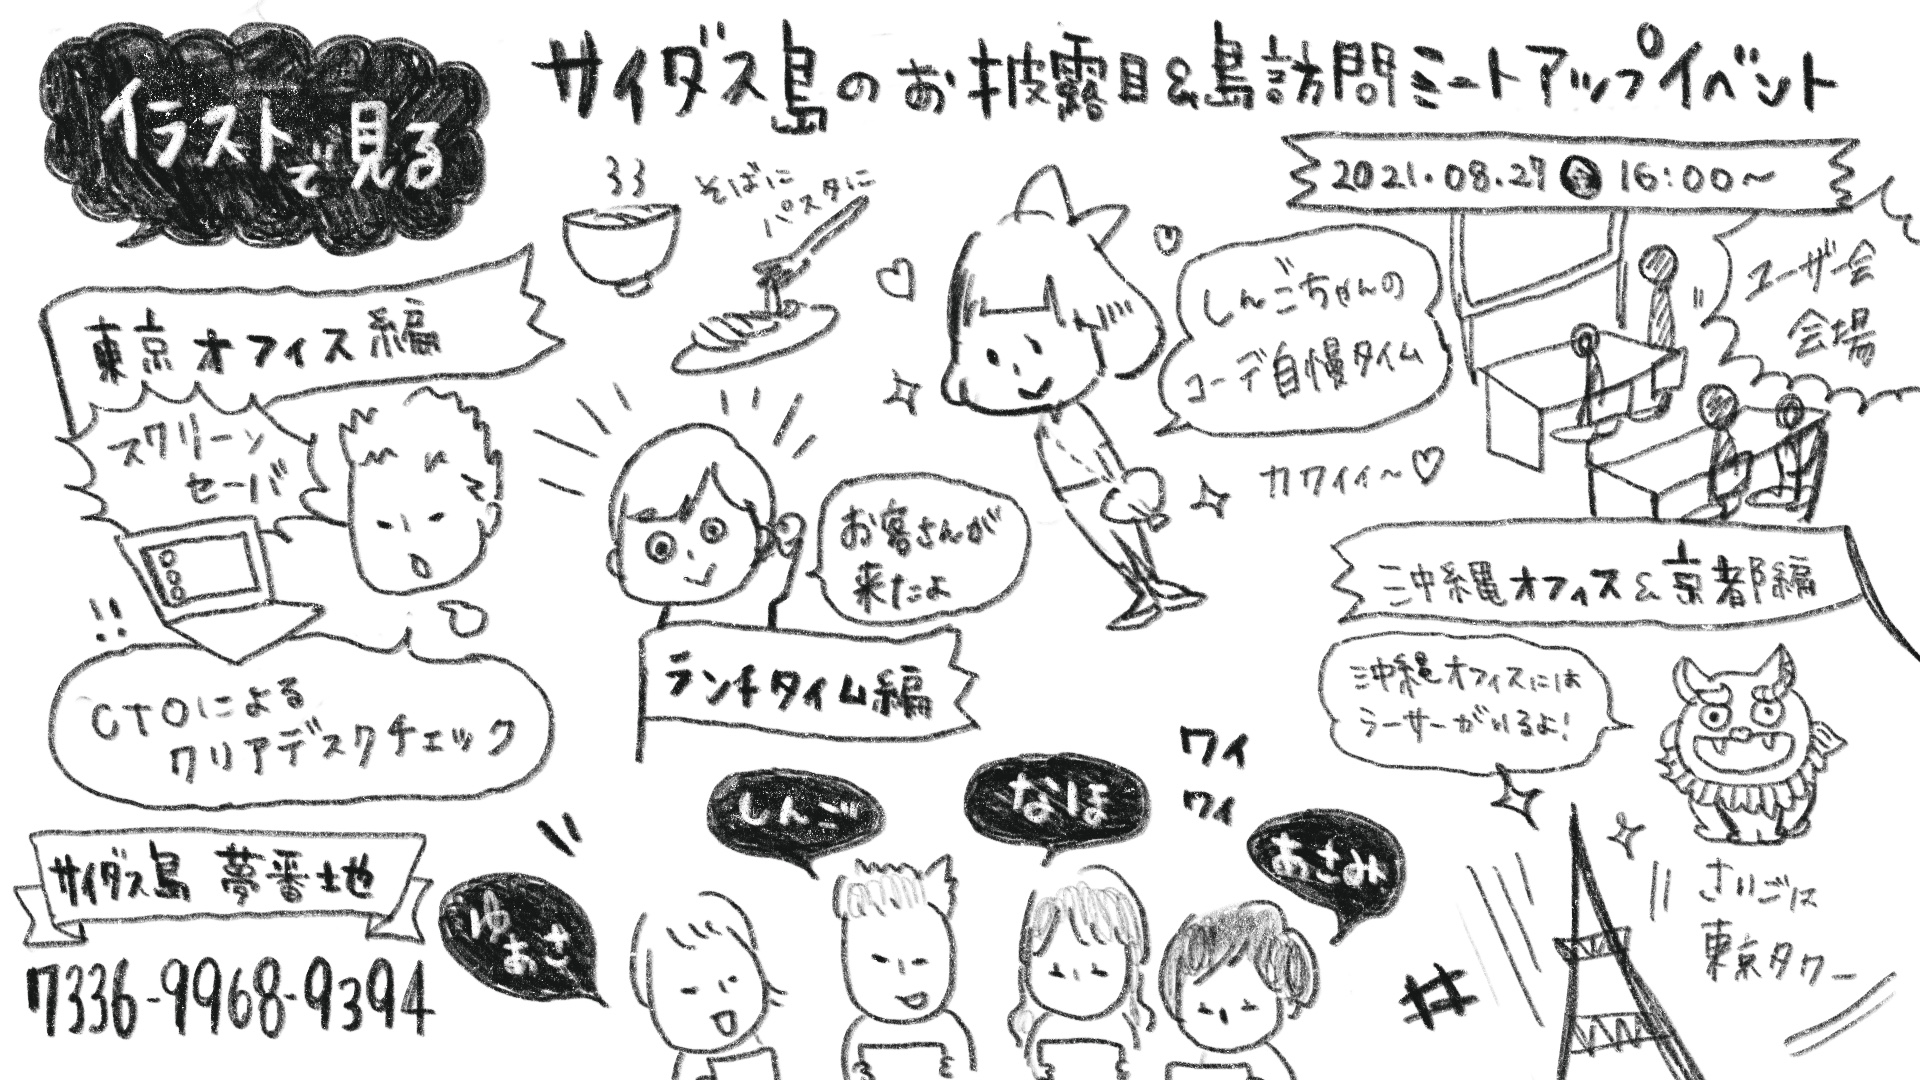 イラストで見る
サイダス島のお披露目&島訪問ミートアップイベント
2021.08.27 金 16:00～
そばに
パスタに
東京オフィス編
スクリーン
セーバ
しんごちゃんの
コーデ自慢タイム
ユーザ会
会場
カワイイ～♡
お客さんが
来たよ
沖縄オフィス&京都編
!!
ランチタイム編
沖縄オフィスには
シーサーがいるよ!
CTOによる
クリアデスクチェック
ワイ
ワイ
しんご
なほ
あさみ
ゆあさ
サイダス島 夢番地
7336-9968-9394
さいごは
東京タワー
#